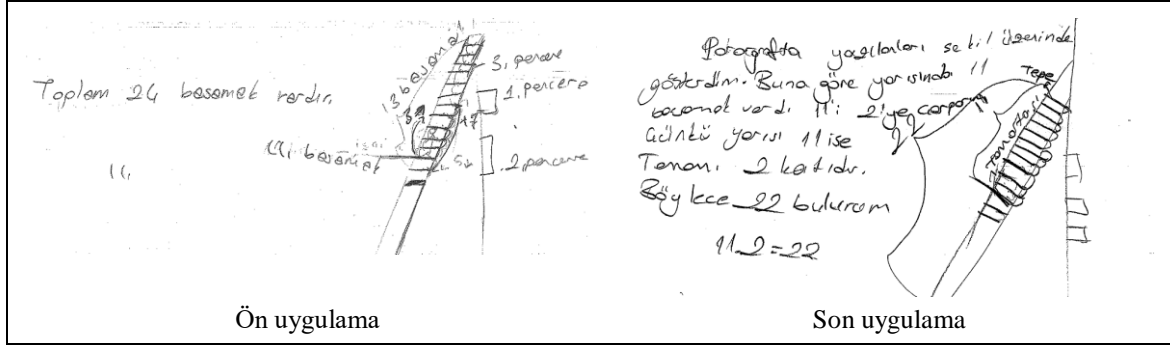 Toplam 24 basamak vardır.
11.
13 basamak
3. pencere
1. pencere
2 pencere
basamak
Fotoğrafta yazılanları şekil üzerinde
gösterdim. Buna göre yarısında 11
basamak vardı. 11'i 2'ye çarparım
Çünkü yarısı 11 ise
Tamamı 2 katıdır.
Böylece 22 bulurum
11.2=22
Tepe
22
Ön uygulama
Son uygulama